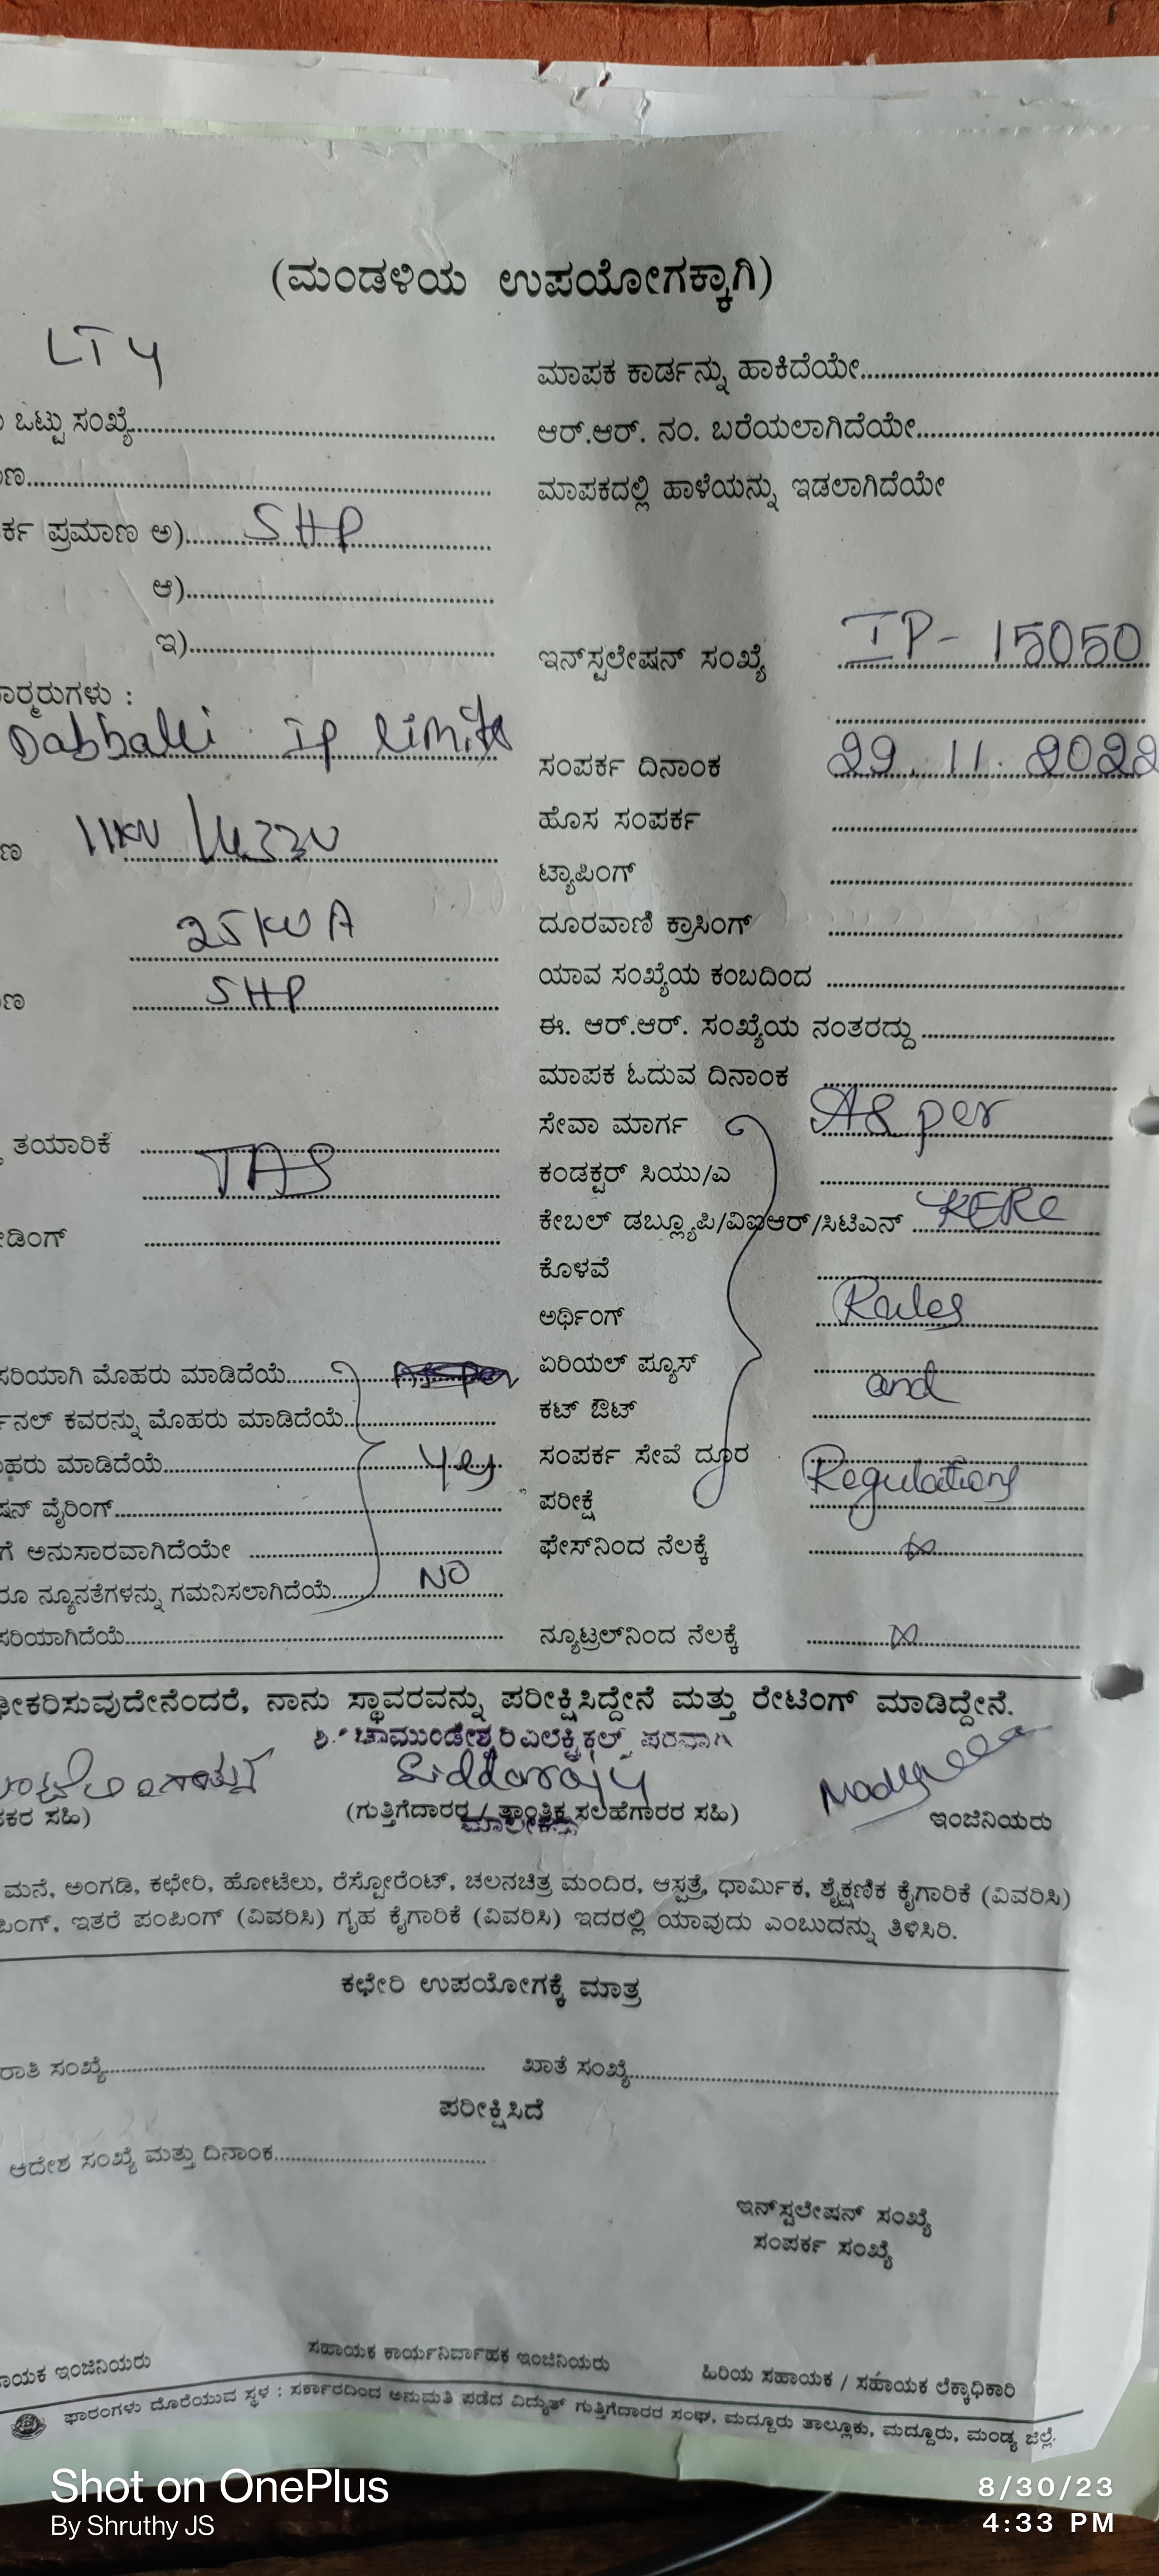 (ಮಂಡಳಿಯ ಉಪಯೋಗಕ್ಕಾಗಿ)
LT 4
ಒಟ್ಟು ಸಂಖ್ಯೆ
ಣ
ರ್ಕ ಪ್ರಮಾಣ ಅ) 5HP
ಆ)
ಇ)
ಾರ್ಮರುಗಳು :
Dabballi IP limits
ಣ 11KV /433V
25 KVA
ಣ 5HP
ತಯಾರಿಕೆ
TAS
ೇಡಿಂಗ್
ಸರಿಯಾಗಿ ಮೊಹರು ಮಾಡಿದೆಯೆ
ರ್ಮಿನಲ್ ಕವರನ್ನು ಮೊಹರು ಮಾಡಿದೆಯೆ
ೊಹರು ಮಾಡಿದೆಯೆ Yes
ಷನ್ ವೈರಿಂಗ್
ಗೆ ಅನುಸಾರವಾಗಿದೆಯೇ
ರೂ ನ್ಯೂನತೆಗಳನ್ನು ಗಮನಿಸಲಾಗಿದೆಯೆ NO
ಸರಿಯಾಗಿದೆಯೆ
ಮಾಪಕ ಕಾರ್ಡನ್ನು ಹಾಕಿದೆಯೇ
ಆರ್.ಆರ್. ನಂ. ಬರೆಯಲಾಗಿದೆಯೇ
ಮಾಪಕದಲ್ಲಿ ಹಾಳೆಯನ್ನು ಇಡಲಾಗಿದೆಯೇ
ಇನ್‌ಸ್ಟಲೇಷನ್ ಸಂಖ್ಯೆ IP- 15050
ಸಂಪರ್ಕ ದಿನಾಂಕ 29.11.2022
ಹೊಸ ಸಂಪರ್ಕ
ಟ್ಯಾಪಿಂಗ್
ದೂರವಾಣಿ ಕ್ರಾಸಿಂಗ್
ಯಾವ ಸಂಖ್ಯೆಯ ಕಂಬದಿಂದ
ಈ. ಆರ್.ಆರ್. ಸಂಖ್ಯೆಯ ನಂತರದ್ದು
ಮಾಪಕ ಓದುವ ದಿನಾಂಕ
ಸೇವಾ ಮಾರ್ಗ As per
ಕಂಡಕ್ಟರ್ ಸಿಯು/ಎ
ಕೇಬಲ್ ಡಬ್ಲ್ಯೂಪಿ/ವಿಐಆರ್/ಸಿಟಿಎನ್ KERC
ಕೊಳವೆ
ಅರ್ಥಿಂಗ್ Rules
ಏರಿಯಲ್ ಫ್ಯೂಸ್
ಕಟ್ ಔಟ್ and
ಸಂಪರ್ಕ ಸೇವೆ ದೂರ
ಪರೀಕ್ಷೆ Regulations
ಫೇಸ್‌ನಿಂದ ನೆಲಕ್ಕೆ
ನ್ಯೂಟ್ರಲ್‌ನಿಂದ ನೆಲಕ್ಕೆ
ಢೀಕರಿಸುವುದೇನೆಂದರೆ, ನಾನು ಸ್ಥಾವರವನ್ನು ಪರೀಕ್ಷಿಸಿದ್ದೇನೆ ಮತ್ತು ರೇಟಿಂಗ್ ಮಾಡಿದ್ದೇನೆ.
ಶ್ರೀ ಚಾಮುಂಡೇಶ್ವರಿ ಎಲೆಕ್ಟ್ರಿಕಲ್ಸ್ ಪರವಾಗಿ
Siddaraju
ಕರ ಸಹಿ) (ಗುತ್ತಿಗೆದಾರರ / ತಾಂತ್ರಿಕ ಸಲಹೆಗಾರರ ಸಹಿ) ಇಂಜಿನಿಯರು
ಮಾಲೀಕರು
ಮನೆ, ಅಂಗಡಿ, ಕಛೇರಿ, ಹೋಟೆಲು, ರೆಸ್ಟೋರೆಂಟ್, ಚಲನಚಿತ್ರ ಮಂದಿರ, ಆಸ್ಪತ್ರೆ, ಧಾರ್ಮಿಕ, ಶೈಕ್ಷಣಿಕ ಕೈಗಾರಿಕೆ (ವಿವರಿಸಿ)
ಪಿಂಗ್, ಇತರೆ ಪಂಪಿಂಗ್ (ವಿವರಿಸಿ) ಗೃಹ ಕೈಗಾರಿಕೆ (ವಿವರಿಸಿ) ಇದರಲ್ಲಿ ಯಾವುದು ಎಂಬುದನ್ನು ತಿಳಿಸಿರಿ.
ಕಛೇರಿ ಉಪಯೋಗಕ್ಕೆ ಮಾತ್ರ
ರಾತಿ ಸಂಖ್ಯೆ ಖಾತೆ ಸಂಖ್ಯೆ
ಪರೀಕ್ಷಿಸಿದೆ
ಆದೇಶ ಸಂಖ್ಯೆ ಮತ್ತು ದಿನಾಂಕ
ಇನ್‌ಸ್ಟಲೇಷನ್ ಸಂಖ್ಯೆ
ಸಂಪರ್ಕ ಸಂಖ್ಯೆ
ಾಯಕ ಇಂಜಿನಿಯರು ಸಹಾಯಕ ಕಾರ್ಯನಿರ್ವಾಹಕ ಇಂಜಿನಿಯರು ಹಿರಿಯ ಸಹಾಯಕ / ಸಹಾಯಕ ಲೆಕ್ಕಾಧಿಕಾರಿ
ಫಾರಂಗಳು ದೊರೆಯುವ ಸ್ಥಳ : ಸರ್ಕಾರದಿಂದ ಅನುಮತಿ ಪಡೆದ ವಿದ್ಯುತ್ ಗುತ್ತಿಗೆದಾರರ ಸಂಘ, ಮದ್ದೂರು ತಾಲ್ಲೂಕು, ಮದ್ದೂರು, ಮಂಡ್ಯ ಜಿಲ್ಲೆ.
Shot on OnePlus
By Shruthy JS
8/30/23
4:33 PM